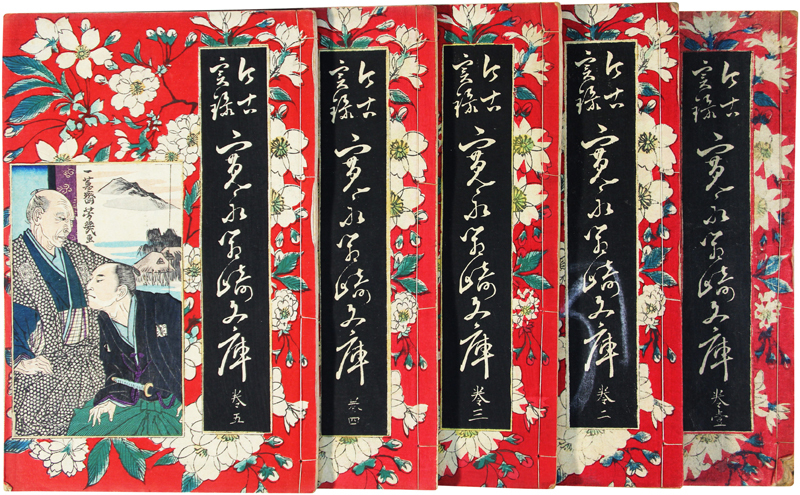 今古
実録
寛永筥崎文庫
巻壹
今古
実録
寛永筥崎文庫
巻二
今古
実録
寛永筥崎文庫
巻三
今古
実録
寛永筥崎文庫
巻四
今古
実録
寛永筥崎文庫
巻五
一蕙齋芳幾画